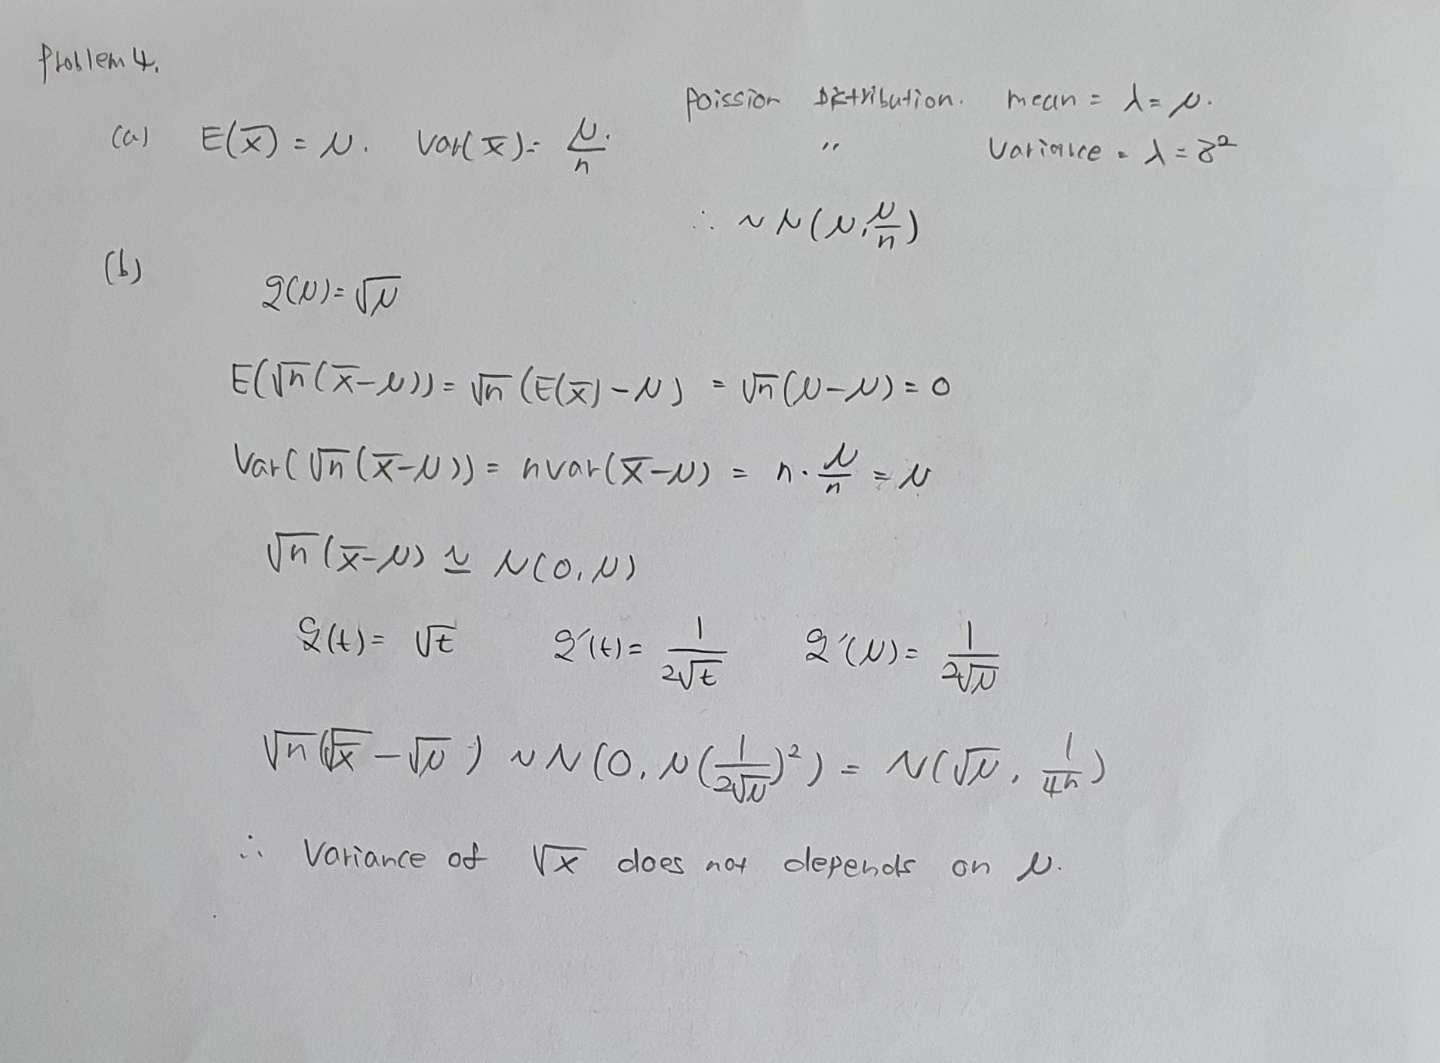 Problem 4.
Poission Distribution. mean = λ = μ.
(a) E(x̄) = μ. Var(x̄) = μ/n.
〃 Variance = λ = σ²
∴ ~ N(μ, μ/n)
(b)
g(μ) = √μ
E(√n(x̄-μ)) = √n(E(x̄)-μ) = √n(μ-μ) = 0
Var(√n(x̄-μ)) = nvar(x̄-μ) = n·μ/n = μ
√n(x̄-μ) ≃ N(0, μ)
g(t) = √t g'(t) = 1/(2√t) g'(μ) = 1/(2√μ)
√n(√x̄ - √μ) ~ N(0, μ(1/(2√μ))²) = N(√μ, 1/(4n))
∴ Variance of √x does not depends on μ.